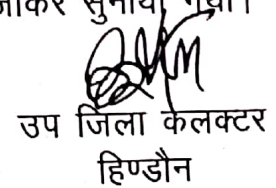 जाकर सुनाया गया।
उप जिला कलक्टर
हिण्डौन